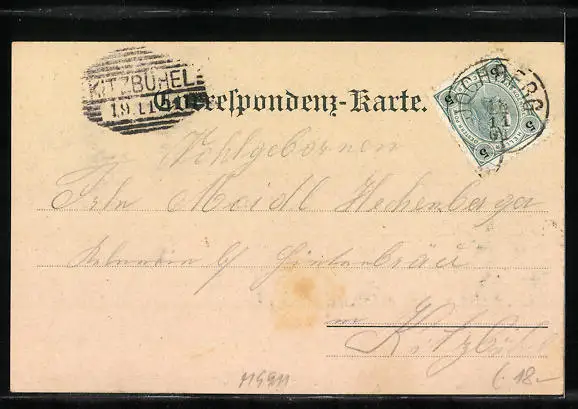 KITZBÜHEL
19.11
Correspondenz-Karte.
JOCHBERG
18
11
5
5
5
Wohlgeboren
Frln Moidl Hechenberger
b/ Hinterbräu
in Kitzbühel
115911
18.-